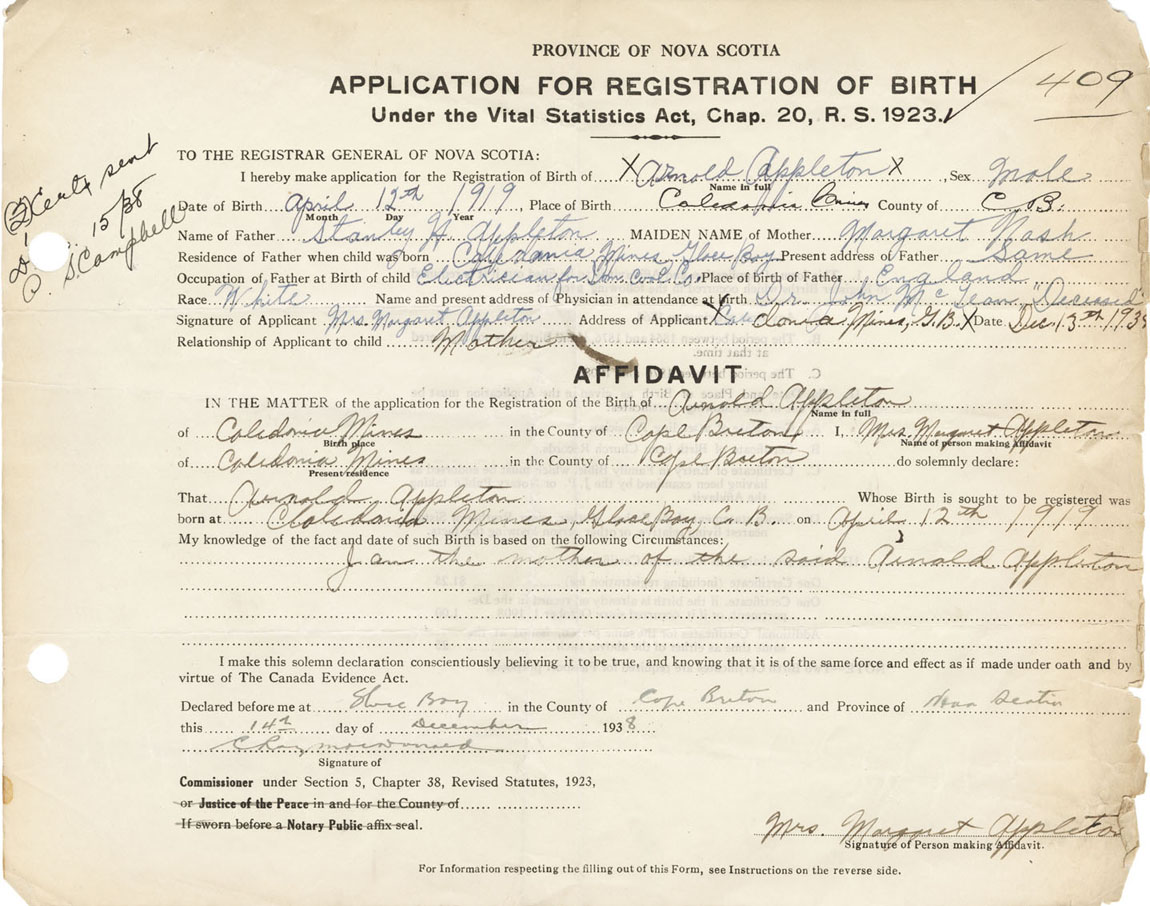 PROVINCE OF NOVA SCOTIA
APPLICATION FOR REGISTRATION OF BIRTH
409
Under the Vital Statistics Act, Chap. 20, R. S. 1923.
sent
15/38
Campbell
TO THE REGISTRAR GENERAL OF NOVA SCOTIA:
I hereby make application for the Registration of Birth of X Arnold Appleton X, Sex Male
Name in full
Date of Birth April 12th 1919, Place of Birth Caledonia Mines County of C. B.
Month Day Year
Name of Father Stanley H Appleton MAIDEN NAME of Mother Margaret Nash
Residence of Father when child was born Caledonia Mines Glace Bay Present address of Father Same
Occupation of Father at Birth of child Electrician for Dom. Coal Co. Place of Birth of Father England
Race White Name and present address of Physician in attendance at Birth Dr. John McLean "Deceased"
Signature of Applicant Mrs. Margaret Appleton Address of Applicant X Caledonia Mines, G.B. X Date Dec. 13th 193
Relationship of Applicant to child Mother
AFFIDAVIT
IN THE MATTER of the application for the Registration of the Birth of Arnold Appleton
Name in full
of Caledonia Mines in the County of Cape Breton I, Mrs. Margaret Appleton
Birth place Name of person making affidavit
of Caledonia Mines in the County of Cape Breton do solemnly declare:
Present residence
That Arnold Appleton Whose Birth is sought to be registered was
born at Caledonia Mines, Glace Bay, C. B. on April 12th 1919
My knowledge of the fact and date of such Birth is based on the following Circumstances:
I am the mother of the said Arnold Appleton
I make this solemn declaration conscientiously believing it to be true, and knowing that it is of the same force and effect as if made under oath and by
virtue of The Canada Evidence Act.
Declared before me at Glace Bay in the County of Cape Breton and Province of Nova Scotia
this 14th day of December 1938
Signature of
Commissioner under Section 5, Chapter 38, Revised Statutes, 1923,
or Justice of the Peace in and for the County of
If sworn before a Notary Public affix seal.
Mrs. Margaret Appleton
Signature of Person making Affidavit.
For Information respecting the filling out of this Form, see Instructions on the reverse side.